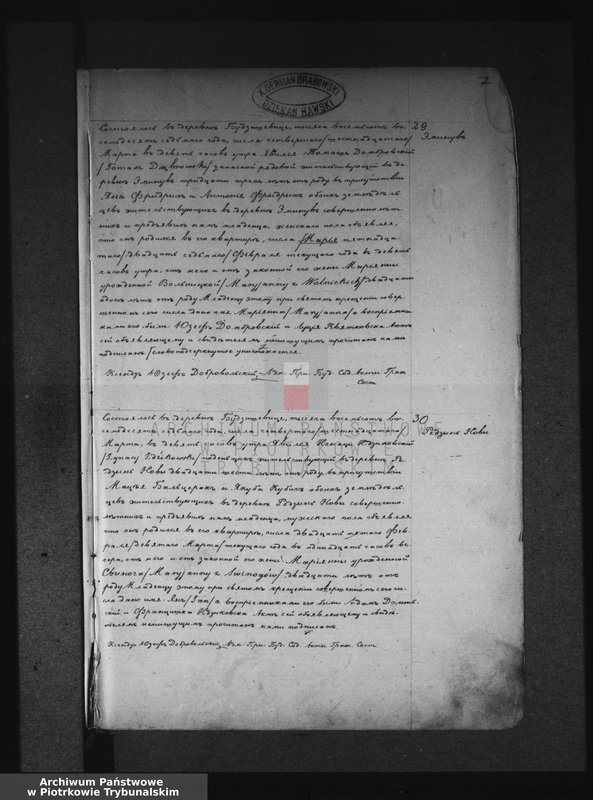 X. GERMAN GRABOWSKI
DZIEKAN RAWSKI
7
29
Эминувъ
Состоялось въ деревнѣ Будзишевице, тысяча восемьсотъ во-
семьдесятъ седьмаго года, числа четвертаго/шестнадцатаго/
Марта въ девять часовъ утра. Явился Томашъ Домбровскій
/Tomasz Dąbrowski/ запасной рядовой жительствующій въ де-
ревнѣ Эминувъ тридцати трехъ лѣтъ отъ роду въ присутствіи
Яна Фрейдриха и Антонія Фрейдриха обоихъ земледѣль-
цевъ жительствующихъ въ деревнѣ Эминувъ совершеннолѣт-
нихъ и предъявилъ намъ младенца женскаго пола объявляя,
что онъ родился въ его квартирѣ, числа Марта пятнадца-
таго/двадцать седьмаго/ Февраля текущаго года въ девять
часовъ утра, отъ него и отъ законной его жены Маріянны
урожденной Вольницкой /Maryanny z Wolnickich/ двадцати
лѣтъ отъ роду. Младенцу этому при святомъ крещеніи совер-
шенномъ сего числа дано имя Маріянна /Maryanna/ а воспріемни-
ками его были Юзефъ Домбровскій и Луція Квятковска. Актъ
сей объявляющему и свидѣтелямъ неграмотнымъ прочитанъ нами
подписанъ /слово подчеркнутое уничтожается.
Ксендзъ Юзефъ Добровольскій Адм. Пр. Буд. Сод. Акты Граж.
Сост.
30
Редзень Новы
Состоялось въ деревнѣ Будзишевице, тысяча восемьсотъ во-
семьдесятъ седьмаго года, числа четвертаго/шестнадцатаго/
Марта, въ девять часовъ утра. Явился Игнацы Идзиковскій
/Ignacy Idzikowski/ поденщикъ жительствующій въ деревнѣ Ре-
дзень Новы двадцати шести лѣтъ отъ роду, въ присутствіи
Мацѣя Бальцерака и Якуба обоихъ земледѣль-
цевъ жительствующихъ въ деревнѣ Редзень Новы совершенно-
лѣтнихъ и предъявилъ намъ младенца, мужескаго пола объявляя
что онъ родился въ его квартирѣ, числа двадцать пятаго Фев-
раля/девятаго Марта/ текущаго года въ одинадцать часовъ ве-
чера, отъ него и отъ законной его жены Маріянны урожденной
/Maryanny z двадцати лѣтъ отъ
роду. Младенцу этому при святомъ крещеніи совершенномъ сего чи-
сла дано имя Янъ/Jan/ а воспріемниками его были Адамъ
и Францишка Идзиковска. Актъ сей объявляющему и свидѣ-
телямъ неграмотнымъ прочитанъ нами подписанъ
Ксендзъ Юзефъ Добровольскій Адм. Прн. Буд. Сод. Акты Граж. Сост.
ARCHIWUM PAŃSTWOWE
W PIOTRKOWIE
TRYBUNALSKIM
Archiwum Państwowe
w Piotrkowie Trybunalskim